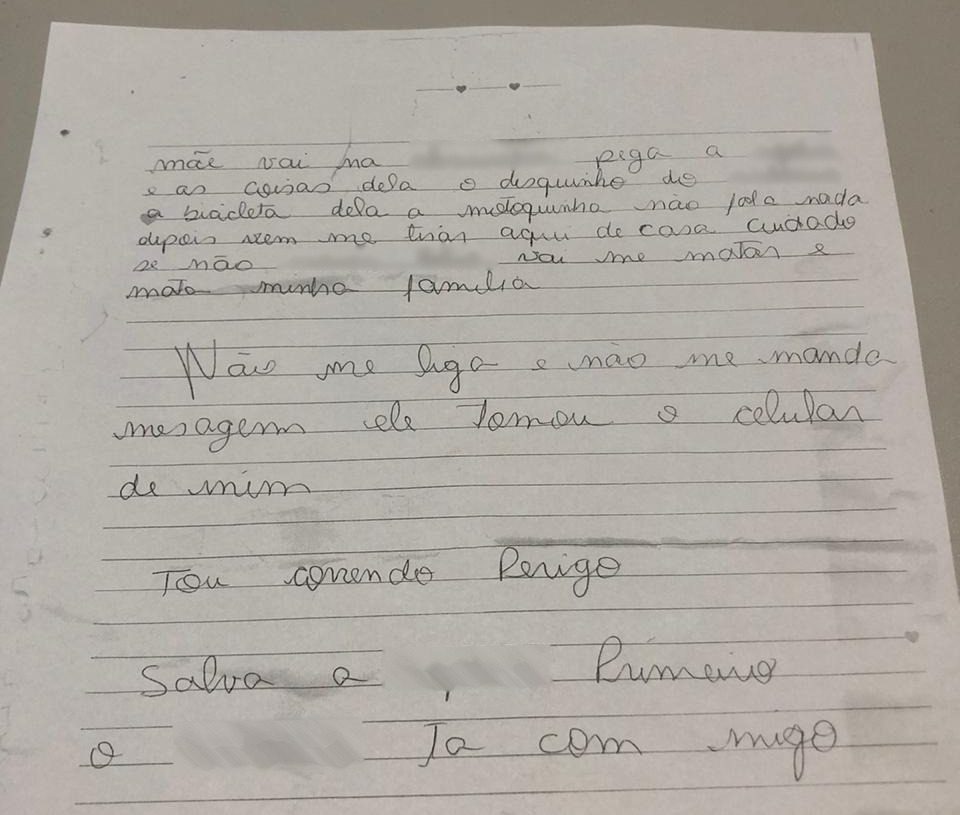 mãe vai na pega a
e as coisas dela o disquinho do
a bicicleta dela a motoquinha não fala nada
depois vem me tirar aqui de casa cuidado
se não vai me matar e
mata minha familia
Não me liga e não me manda
mesagem ele Tomou o celular
de mim
Tou correndo Perigo
Salva a , Primeiro
o Ta com migo